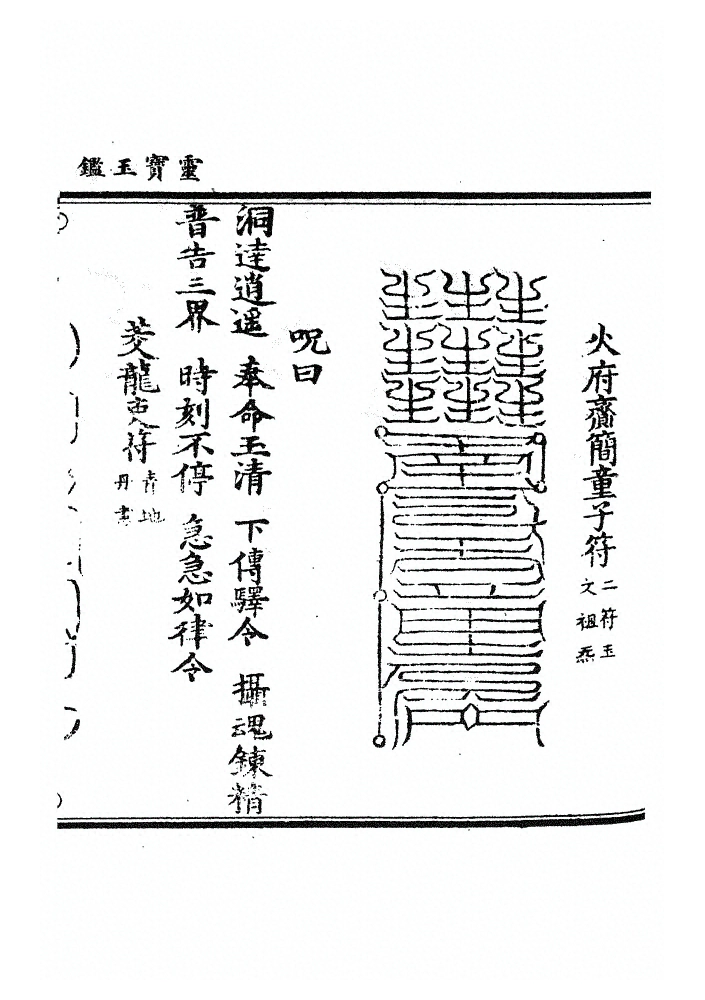 靈寶玉鑑
火府齎簡童子符
二符玉
文祖炁
呪曰
洞達逍遥 奉命玉清 下傳驛令 攝魂鍊精
普告三界 時刻不停 急急如律令
龍 符
青地
丹書